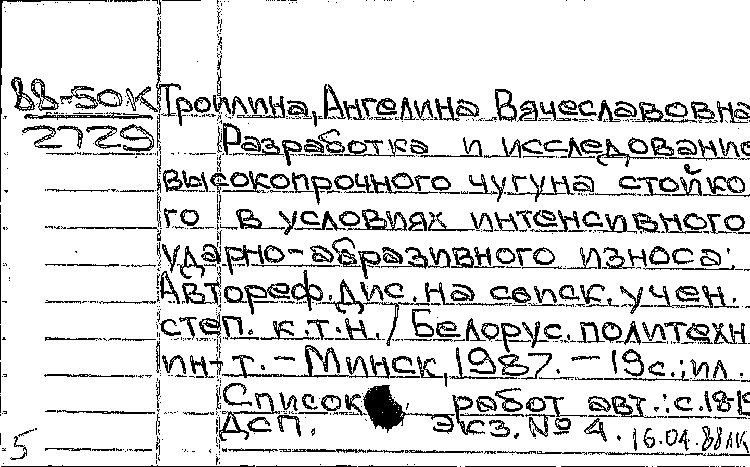 88-50К
2729
Троилина, Ангелина Вячеславовна
Разработка и исследование
высокопрочного чугуна стойко
го в условиях интенсивного
ударно-абразивного износа:
Автореф. дис. на соиск. учен.
степ. к.т.н. / Белорус. политехн
ин-т. - Минск, 1987. - 19с.; ил.
Список работ авт.: с.18-19
ДСП. экз. № 4. 16.04.88
5